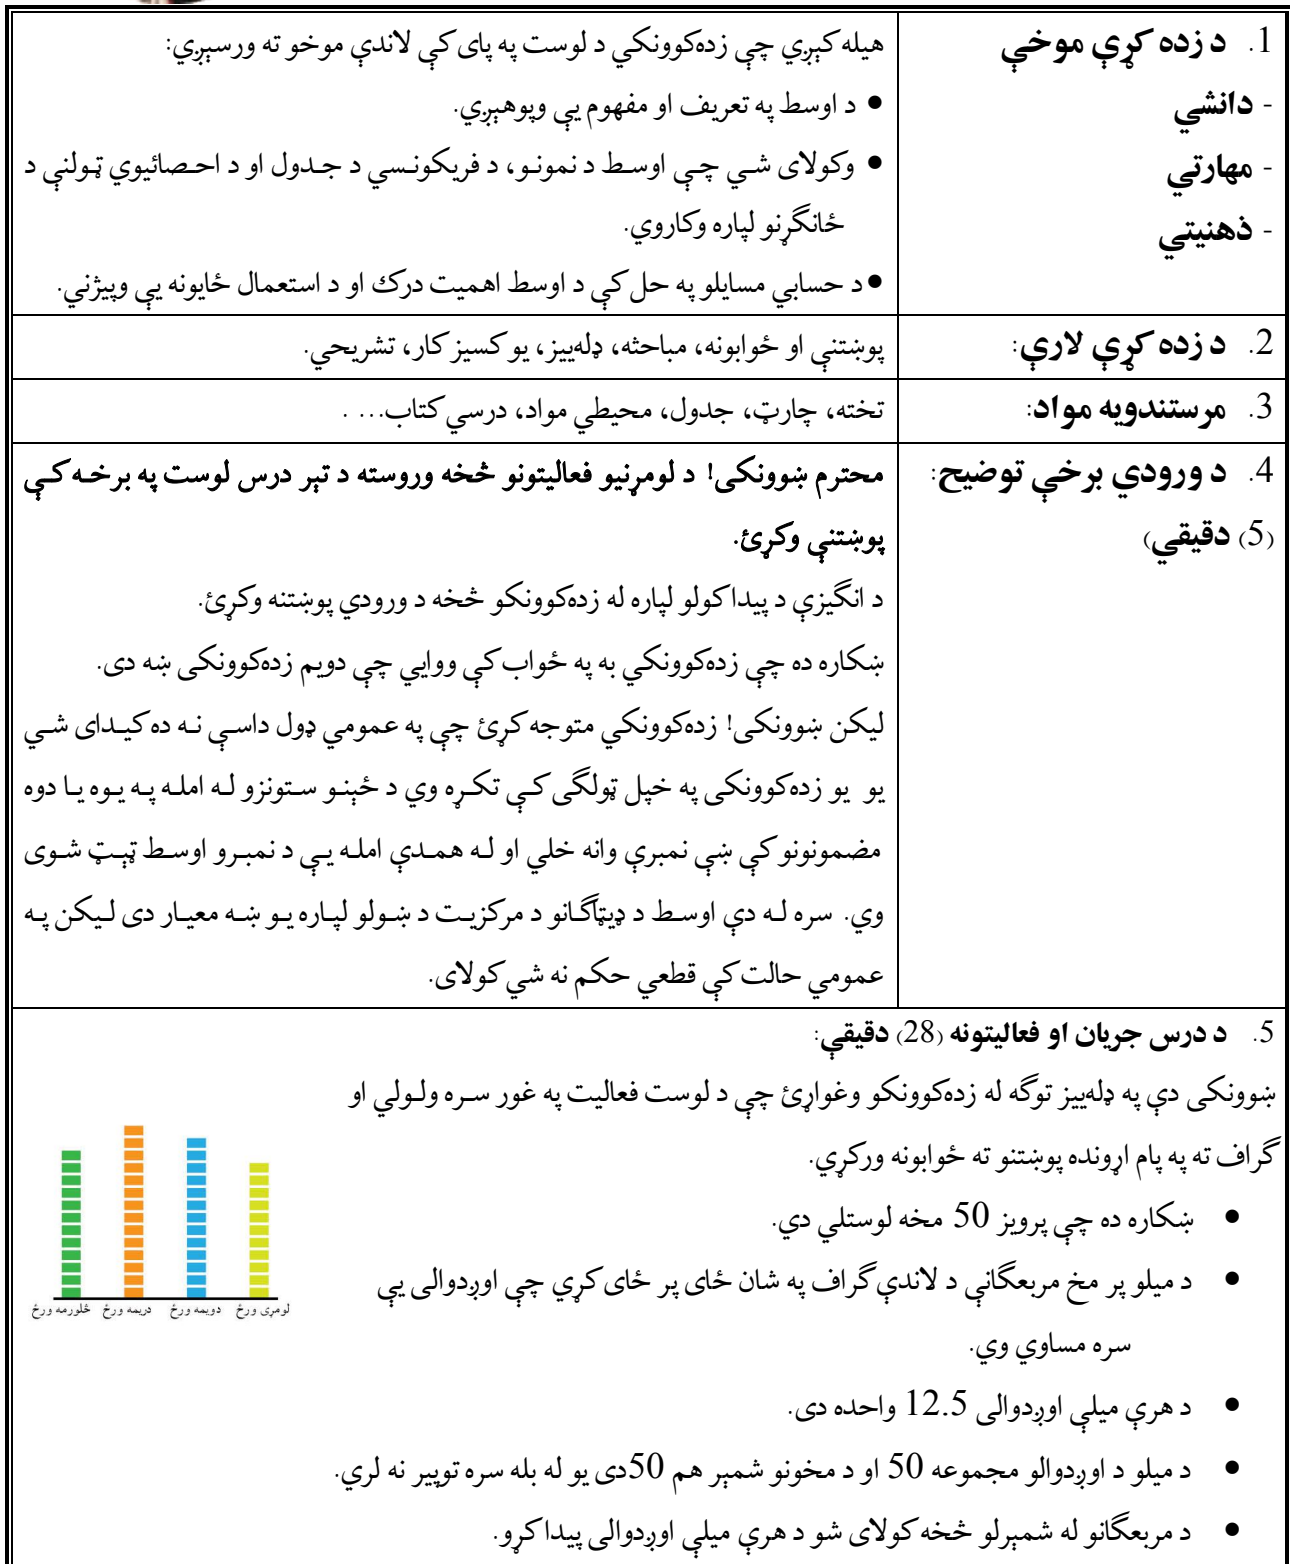 1. د زده کړې موخې
- دانشي
- مهارتي
- ذهنيتي
هيله کېږي چې زده‌کوونکي د لوست په پای کې لاندې موخو ته ورسېږي:
● د اوسط په تعريف او مفهوم يې وپوهېږي.
● وکولای شي چې اوسط د نمونو، د فريکونسي د جدول او د احصائيوي ټولنې د
ځانګړنو لپاره وکاروي.
● د حسابي مسايلو په حل کې د اوسط اهميت درک او د استعمال ځايونه يې وپيژني.
2. د زده کړې لارې:
پوښتنې او ځوابونه، مباحثه، ډله‌ييز، يو کسيز کار، تشريحي.
3. مرستندويه مواد:
تخته، چارټ، جدول، محيطي مواد، درسي کتاب... .
4. د ورودي برخې توضيح:
(5) دقيقې)
محترم ښوونکی! د لومړنيو فعاليتونو څخه وروسته د تېر درس لوست په برخه کې
پوښتنې وکړئ.
د انګيزې د پيدا کولو لپاره له زده‌کوونکو څخه د ورودي پوښتنه وکړئ.
ښکاره ده چې زده‌کوونکي به په ځواب کې ووايي چې دويم زده‌کوونکی ښه دی.
ليکن ښوونکی! زده‌کوونکي متوجه کړئ چې په عمومي ډول داسې نه ده کيدای شي
يو يو زده‌کوونکی په خپل ټولګی کې تکړه وي د ځېنو ستونزو له امله په يوه يا دوه
مضمونونو کې ښې نمبرې وانه خلي او له همدې امله يې د نمبرو اوسط ټېټ شوی
وي. سره له دې اوسط د ډيټاګانو د مرکزيت د ښولو لپاره يو ښه معيار دی ليکن په
عمومي حالت کې قطعي حکم نه شي کولای.
5. د درس جريان او فعاليتونه (28) دقيقې:
ښوونکی دې په ډله‌ييز توګه له زده‌کوونکو وغواړئ چې د لوست فعاليت په غور سره ولولي او
ګراف ته په پام اړونده پوښتنو ته ځوابونه ورکړي.
● ښکاره ده چې پرويز 50 مخه لوستلي دي.
● د ميلو پر مخ مربعګانې د لاندې ګراف په شان ځای پر ځای کړي چې اوږدوالی يې
سره مساوي وي.
● د هرې ميلې اوږدوالی 12.5 واحده دی.
● د ميلو د اوږدوالو مجموعه 50 او د مخونو شمېر هم 50دی يو له بله سره توپير نه لري.
● د مربعګانو له شمېرلو څخه کولای شو د هرې ميلې اوږدوالی پيدا کړو.
لومړی ورځ دويمه ورځ دريمه ورځ څلورمه ورځ